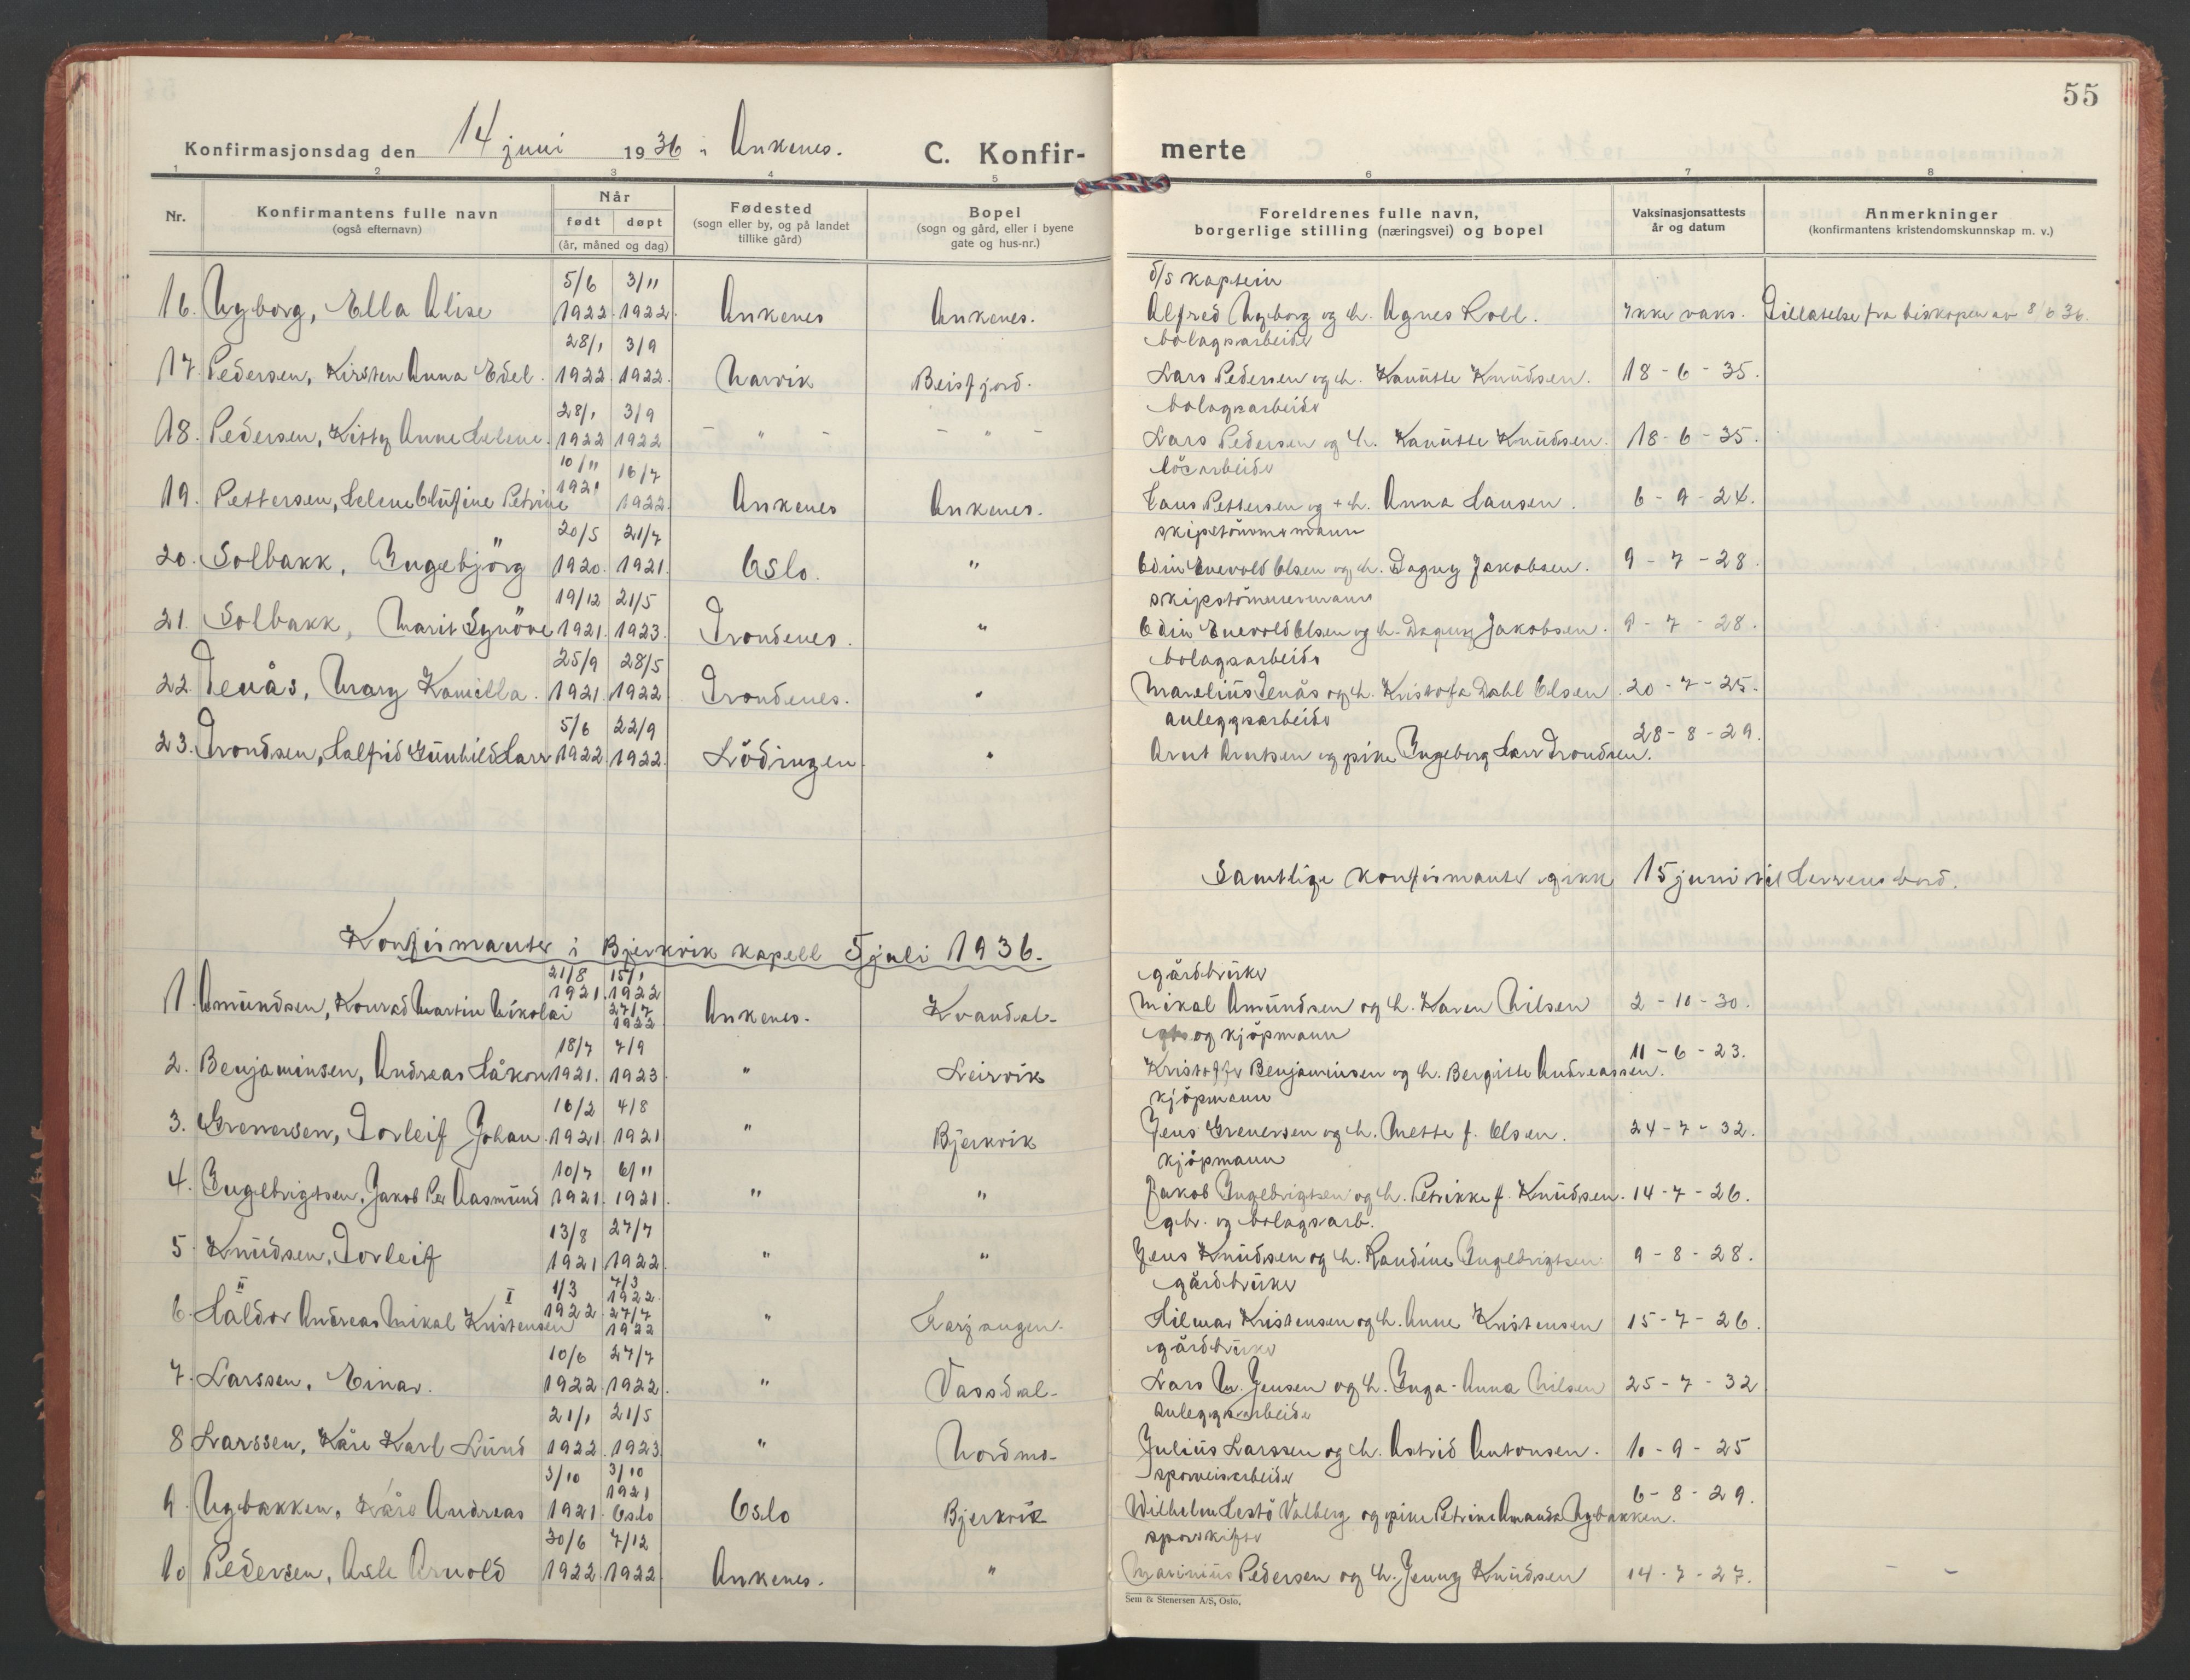 55
Konfirmasjonsdag den 14 juni 1936 i Ankenes. C. Konfir- merte
1 2 3 4 5 6 7 8
Nr. Konfirmantens fulle navn (også efternavn) Når født døpt (år, måned og dag) Fødested (sogn eller by, og på landet tillike gård) Bopel (sogn og gård, eller i byene gate og hus-nr.) Foreldrenes fulle navn, borgerlige stilling (næringsvei) og bopel Vaksinasjonsattests år og datum Anmerkninger (konfirmantens kristendomskunnskap m. v.)
5/6 3/11 d/s kaptein
16. Nyborg, Ella Alise 1922. 1922. Ankenes Ankenes. Alfred Nyborg og h. Agnes Roll. Ikke vaks. Tillatelse fra biskopen av 8/6 36.
28/1 3/9 bolagsarbeider
17. Pedersen, Kirsten Anna Edel. 1922. 1922. Narvik Beisfjord. Lars Pedersen og h. Kanutte Knudsen. 18-6-35.
28/1 3/9 bolagsarbeider
18. Pedersen, Kitty Anne Helene. 1922 1922 - " - - " - Lars Pedersen og h. Kanutte Knudsen. 18-6-35.
10/11 16/7 løsarbeider
19. Pettersen, Helene Olufine Petrine 1921 1922. Ankenes Ankenes. Hans Pettersen og + h. Anna Hansen. 6-9-24.
20/5 21/7 skipstømmermann
20. Solbakk, Ingebjörg 1920. 1921. Oslo. " Edin Enevold Olsen og h. Dagny Jakobsen. 9-7-28.
19/12 21/5 skipstømmermann
21. Solbakk, Marit Synöve 1921. 1923. Trondenes. " Edin Enevold Olsen og h. Dagny Jakobsen. 9-7-28.
25/9 28/5 bolagsarbeider
22. Tenås, Mary Kamilla. 1921. 1922. Trondenes. " Marelius Tenås og h. Kristofa Dahl Olsen. 20-7-25.
5/6 22/9 anleggsarbeider
23. Trondsen, Halfrid Gunhild Larr 1922. 1922. Lödingen " Arnt Arntsen og pike Ingeborg Larr Trondsen. 28-8-29.
Samtlige konfirmanter gikk 15 juni til Herrens bord.
Konfirmanter i Bjerkvik kapell 5 juli 1936.
21/8 15/1 gårdbruker
1. Amundsen, Konrad Martin Nikolai 1921. 1922 27/7 1922. Ankenes. Kvandal. Mikal Amundsen og h. Karen Nilsen 2-10-30.
18/7 7/9 og kjöpmann
2. Benjaminsen, Andreas Håkon 1921. 1923. " Leirvik Kristoffer Benjaminsen og h. Bergitte Andreassen. 11-6-23.
16/2 4/8 kjöpmann
3. Grenersen, Torleif Johan. 1921. 1921 " Bjerkvik Jens Grenersen og h. Mette f. Olsen. 24-7-32.
10/7 6/11 kjöpmann
4. Ingebrigtsen, Jakob Per Aasmund 1921. 1921. " " Jakob Ingebrigtsen og h. Petrikke f. Knudsen. 14-7-26.
13/8 27/7 gbr. og bolagsarb.
5. Knudsen, Torleif 1921 1922. " " Jens Knudsen og h. Randine Ingebrigtsen. 9-8-28.
II I 1/3 7/3 1922. gårdbruker
6. Haldor Andreas Mikal Kristensen 1922 27/7 1922 " Herjangen. Hilmar Kristensen og h. Anne Kristensen 15-7-26.
10/6 27/7 gårdbruker
7. Larssen, Einar. 1922. 1922. " Vassdal. Lars N. Jensen og h. Inga-Anna Nilsen 25-7-32
21/1 21/5 anleggsarbeider
8 Larssen, Kåre Karl Lund 1922. 1923. " Nordmo. Julius Larssen og h. Astrid Antonsen. 10-9-25
3/10 3/10 sporveisarbeider
9. Nybakken, Kåre Andreas 1921. 1921 Oslo Oslo Bjerkvik Wilhelm Lestö Valberg og pike Petrine Amanda Nybakken. 6-8-29.
30/6 7/12 sporskifter
10 Pedersen, Asle Arnold 1922. 1922. Ankenes. " Marinius Pedersen og h. Jenny Knudsen 14-7-27.
Sem & Stenersen A/S, Oslo.